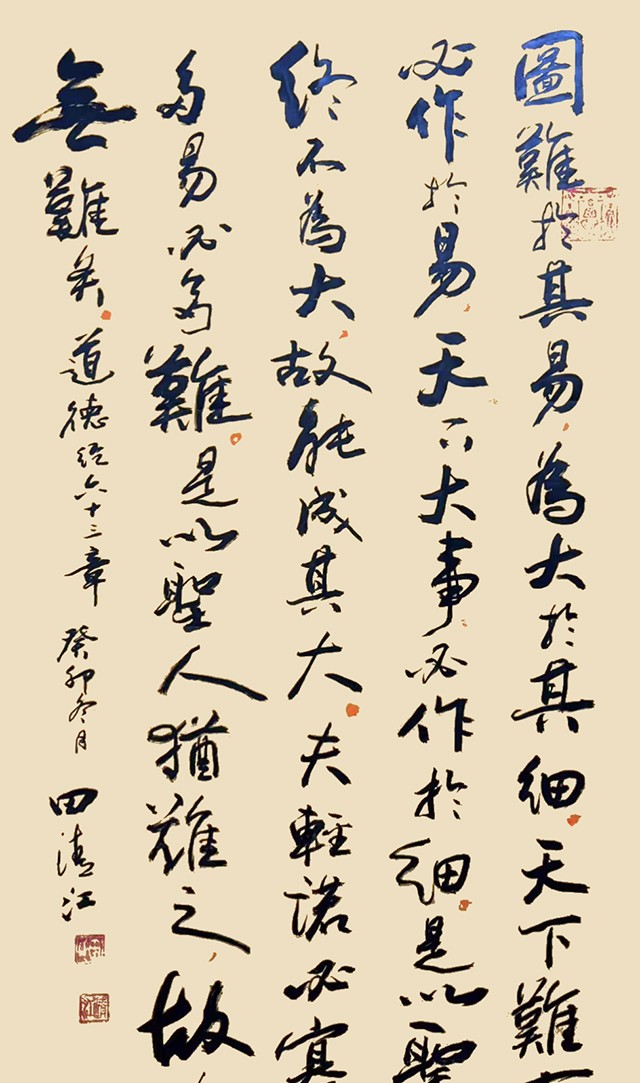 圖難於其易為大於其細天下難
必作於易天下大事必作於細是以聖
終不為大故能成其大夫輕諾必寡
多易必多難是以聖人猶難之故
無難矣道德經六十三章癸卯冬月田清江